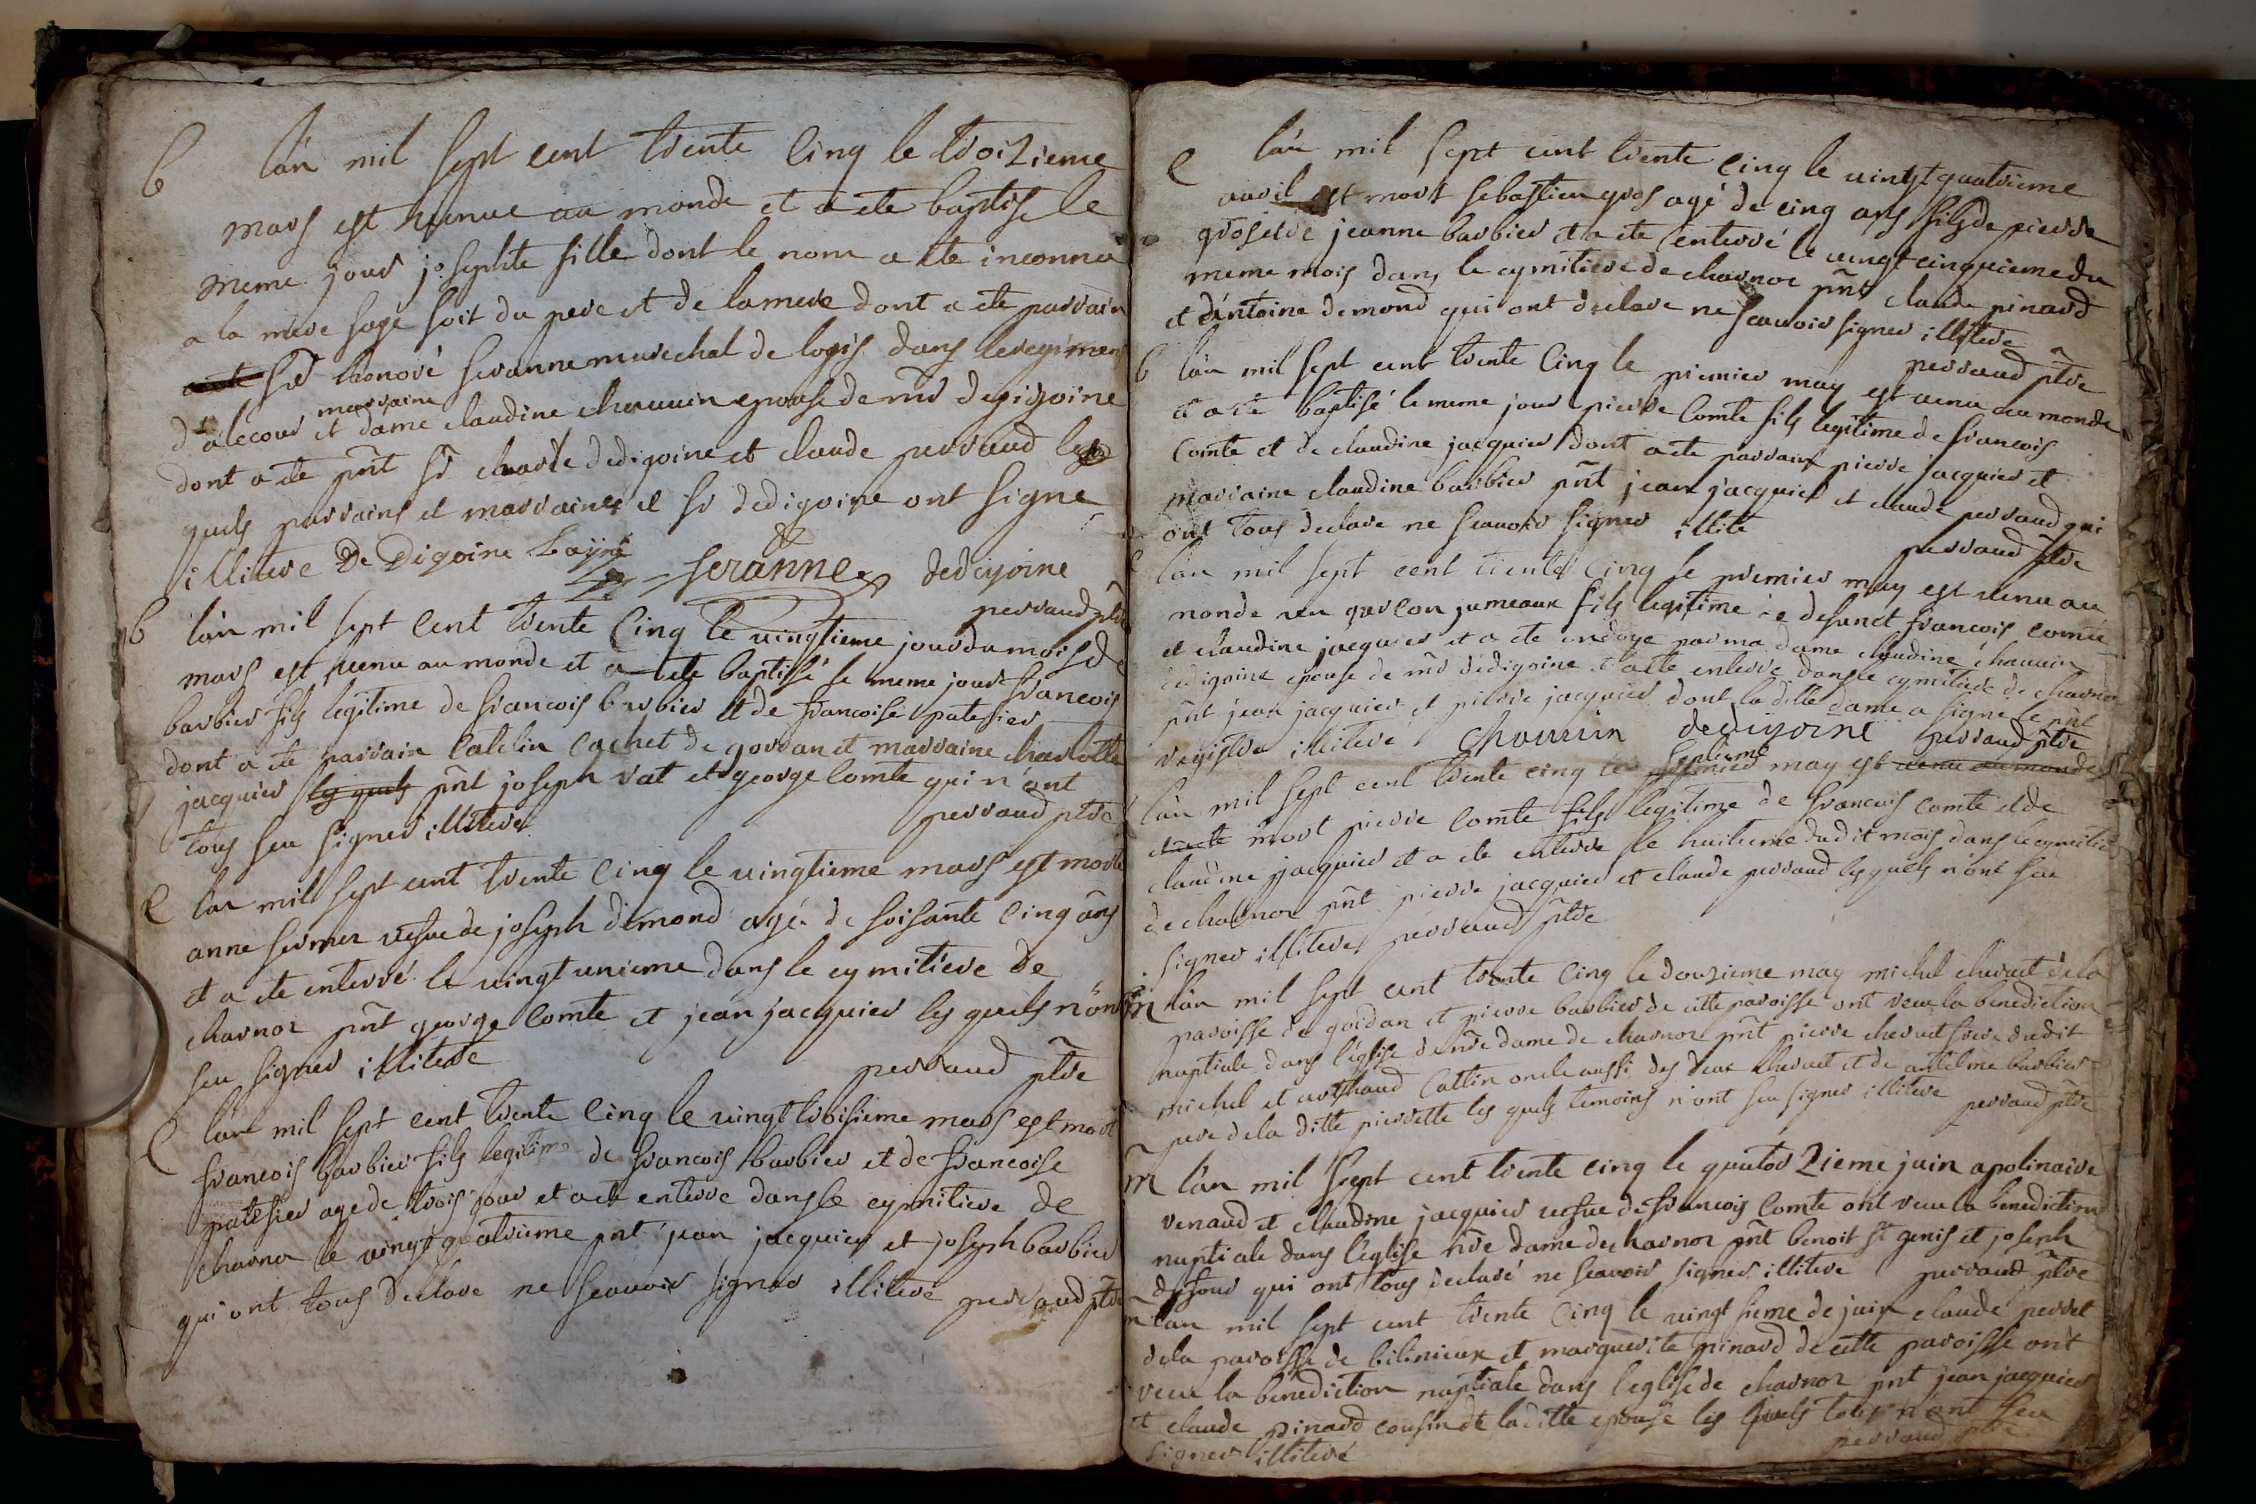 b l'an mil sept cent trente cinq le troizieme
mars est venue au monde et a ete baptisé le
meme jour josephte fille dont le nom a ete inconnu
a la mere sage soit du pere et de la mere dont a ete parrain
sr honoré seranne marechal de logis dans le regimens
marraine
d'alecour et dame claudine chauuin epouse de mr dedigoine
dont a ete pnt sr charle dedigoine et claude perraud les
quels parrains et marraines et sr dedigoine ont signe
illitere De Digoine Layné seranne dedigoine
perraud ptre
b l'an mil sept cent trente cinq le vingtieme jour du mois de
mars est venu au monde et a ete baptissé le meme jour francois
barbier fils legitime de francois barbier et de francoise patesier
dont a ete parrain catelin cachet de gordan et marraine charlotte
jacquier les quels pnt joseph vat et george comte qui n'ont
tous seu signer illitere perraud ptre
e l'an mil sept cent trente cinq le vingtieme mars est morte
anne sermer vefue de joseph demond agée de soisante cinq ans
et a ete enterré le vingt unieme dans le cymitiere de
charnoz pnt george comte et jean jacquier les quels n'ont
seu signer illitere perraud ptre
e l'an mil sept cent trente cinq le vingt troisieme mars est mort
francois barbier fils legitime de francois barbier et de francoise
patesier age de trois jour et a ete enterre dans le cymitiere de
charnoz le vingt quatrieme pnt jean jacquier et joseph barbier
qui ont tous declare ne scauoir signer illiteré perraud ptre
e l'an mil sept cent trente cinq le vingt quatrieme
auril est mort sebastien gros agé de cinq ans fils de pierre
gros et de jeanne barbier et a ete enterré le vingt cinquieme du
meme mois dans le cymitiere de charnoz pnt claude pinard
et d'antoine demond qui ont declare ne scauoir signer illitere
perraud ptre
b l'an mil sept cent trente cinq le premier may est venu au monde
et a ete baptisé le meme jour pierre comte fils legitime de francois
comte et de claudine jacquier dont a ete parrain pierre jacquier et
marraine claudine barbier pnt jean jacquier et claude perraud qui
ont tous declare ne scauoir signer illite perraud ptre
l'an mil sept cent trente cinq le premier may est venu au
monde un garcon jumeaux fils legitime de defunct francois comte
et claudine jacquier et a ete endoye par ma dame claudine chauuin
dedigoine epouse de mr dedigoine et a ete enterre dans le cymitiere de charnoz
pnt jean jacquier et pierre jacquier dont la ditte dame a signe le pnt
registre illiteré chauuin dedigoine perraud ptre
septieme
l'an mil sept cent trente cinq le premier may est venu au monde
et a ete mort pierre comte fils legitime de francois comte et de
claudine jacquier et a ete enterre le huitieme dudit mois dans le cymitier
de charnoz pnt pierre jacquier et claude perraud les quels n'ont seu
signer illitere perraud ptre
m l'an mil sept cent trente cinq le douzieme may michel cheruet de la
paroisse de gordan et pierre barbier de cette paroisse ont receu la benediction
nuptiale dans l'eglise de nre dame de charnoz pnt pierre cheruet frere dudit
michel et arthaud cattin oncle aussi des deux cheruet et de antelme barbier
pere de la ditte pierrette les quels temoins n'ont seu signer illitere perraud ptre
m l'an mil sept cent trente cinq le quator zieme juin apolinaire
renaud et claudine jacquier vefue de francois comte ont receu la benediction
nuptiale dans l'eglise nre dame de charnoz pnt benoit st genis et joseph
dufour qui ont tous declaré ne scauoir signer illitere perraud ptre
m l'an mil sept cent trente cinq le vingt sieme de juin claude perret
de la paroisse de bilinieux et marguerite pinard de cette paroisse ont
receu la benediction nuptiale dans l'eglise de charnoz pnt jean jacquier
et claude pinard cousin de la ditte epouse les quels tous n'ont seu
signer illiteré perraud ptre